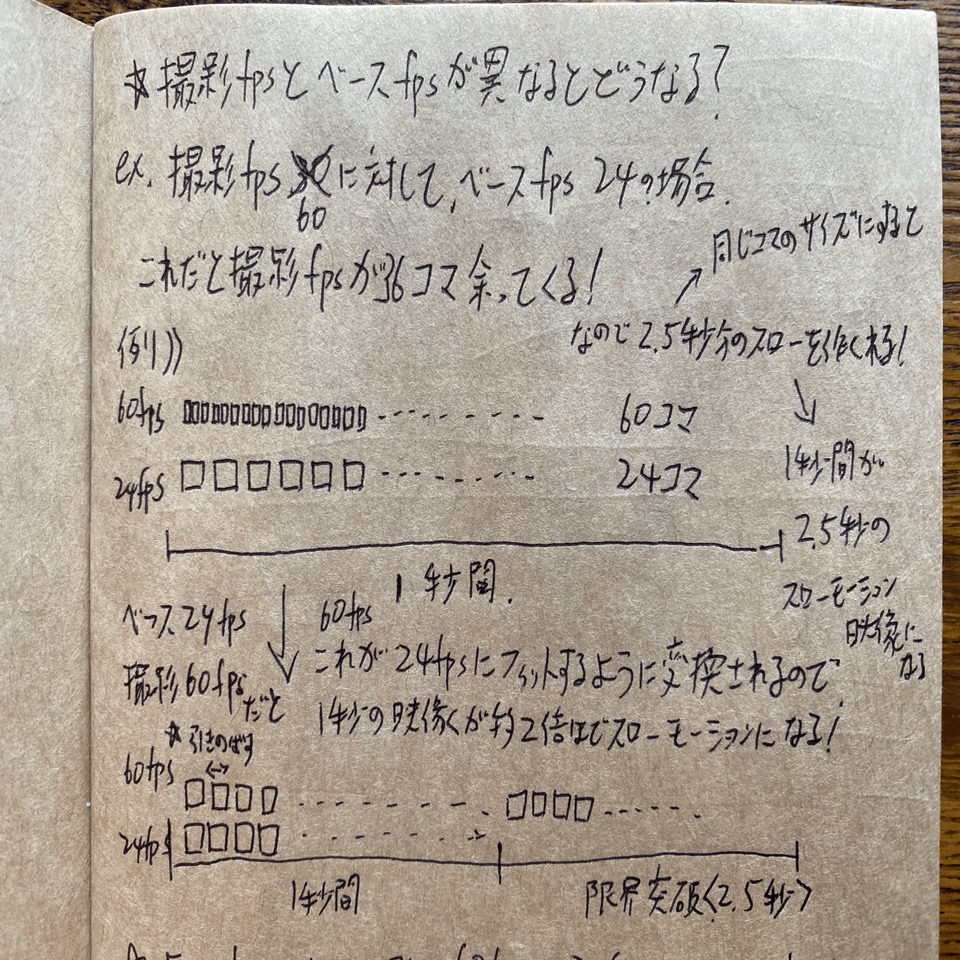 ☆撮影fpsとベースfpsが異なるとどうなる?
ex. 撮影fps 60に対して、ベースfps 24の場合.
これだと撮影fpsが36コマ余ってくる!
同じコマのサイズにすると
なので2.5秒分のスローを作くれる!
例》
60fps 60コマ
24fps 24コマ
1秒間が
2.5秒の
スローモーション
映像に
なる
1秒間.
ベース24fps
撮影60fpsだと
60fps
これが24fpsにフィットするように変換されるので、
1秒の映像くが約2倍ほどスローモーションになる!
☆引きのばす
60fps
24fps
1秒間
限界突破〈2.5秒〉